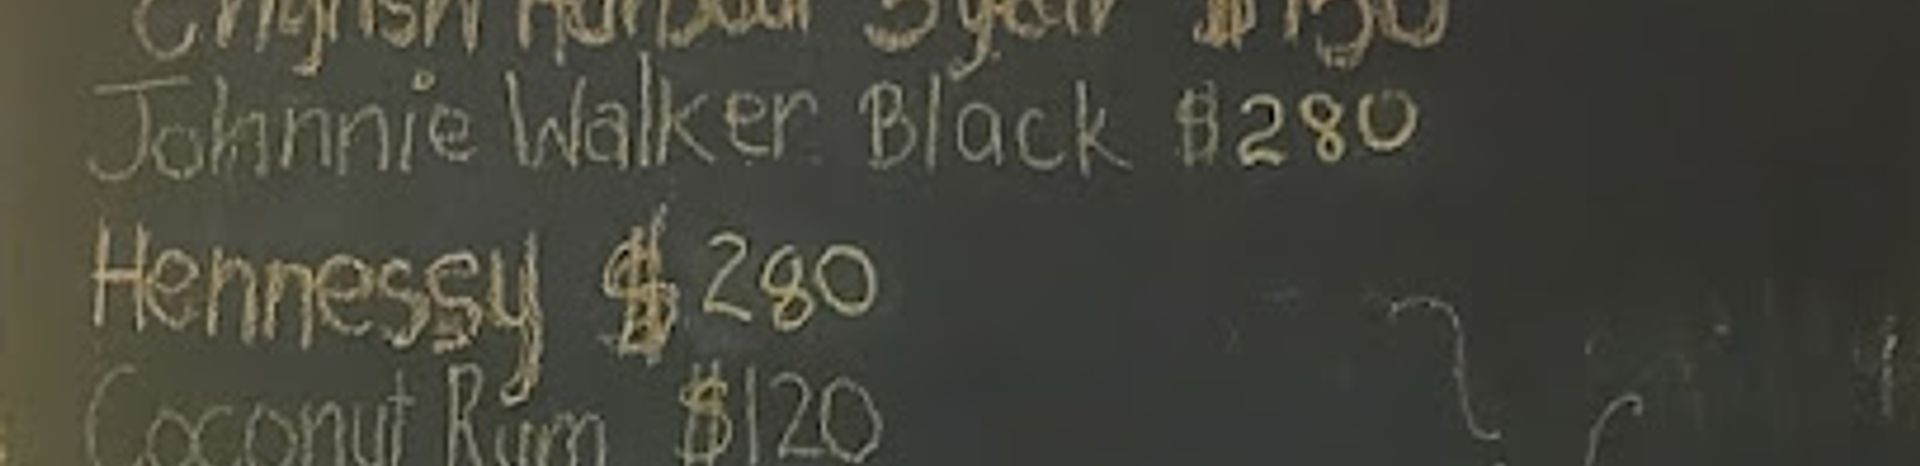 English Harbour 5 year $150
Johnnie Walker Black $280
Hennessy $280
Coconut Rum $120